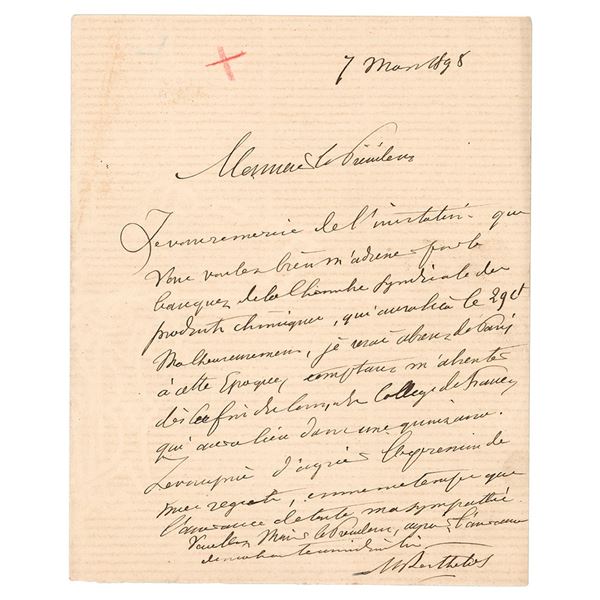 7 Mars 1898
Monsieur le Président
Je vous remercie de l'invitation que
vous voulez bien m'adresser pour le
banquet de la Chambre Syndicale des
produits chimiques, qui aura lieu le 29 ct
Malheureusement, je serai absent de Paris
à cette Epoque, comptant m'absenter
dès la fin du Cours du Collège de France,
qui aura lieu dans une quinzaine.
Je vous prie d'agréer l'expression de
mes regrets, en même temps que
l'assurance de toute ma sympathie.
Veuillez Monsieur le Président, agréer l'assurance
de
M Berthelot